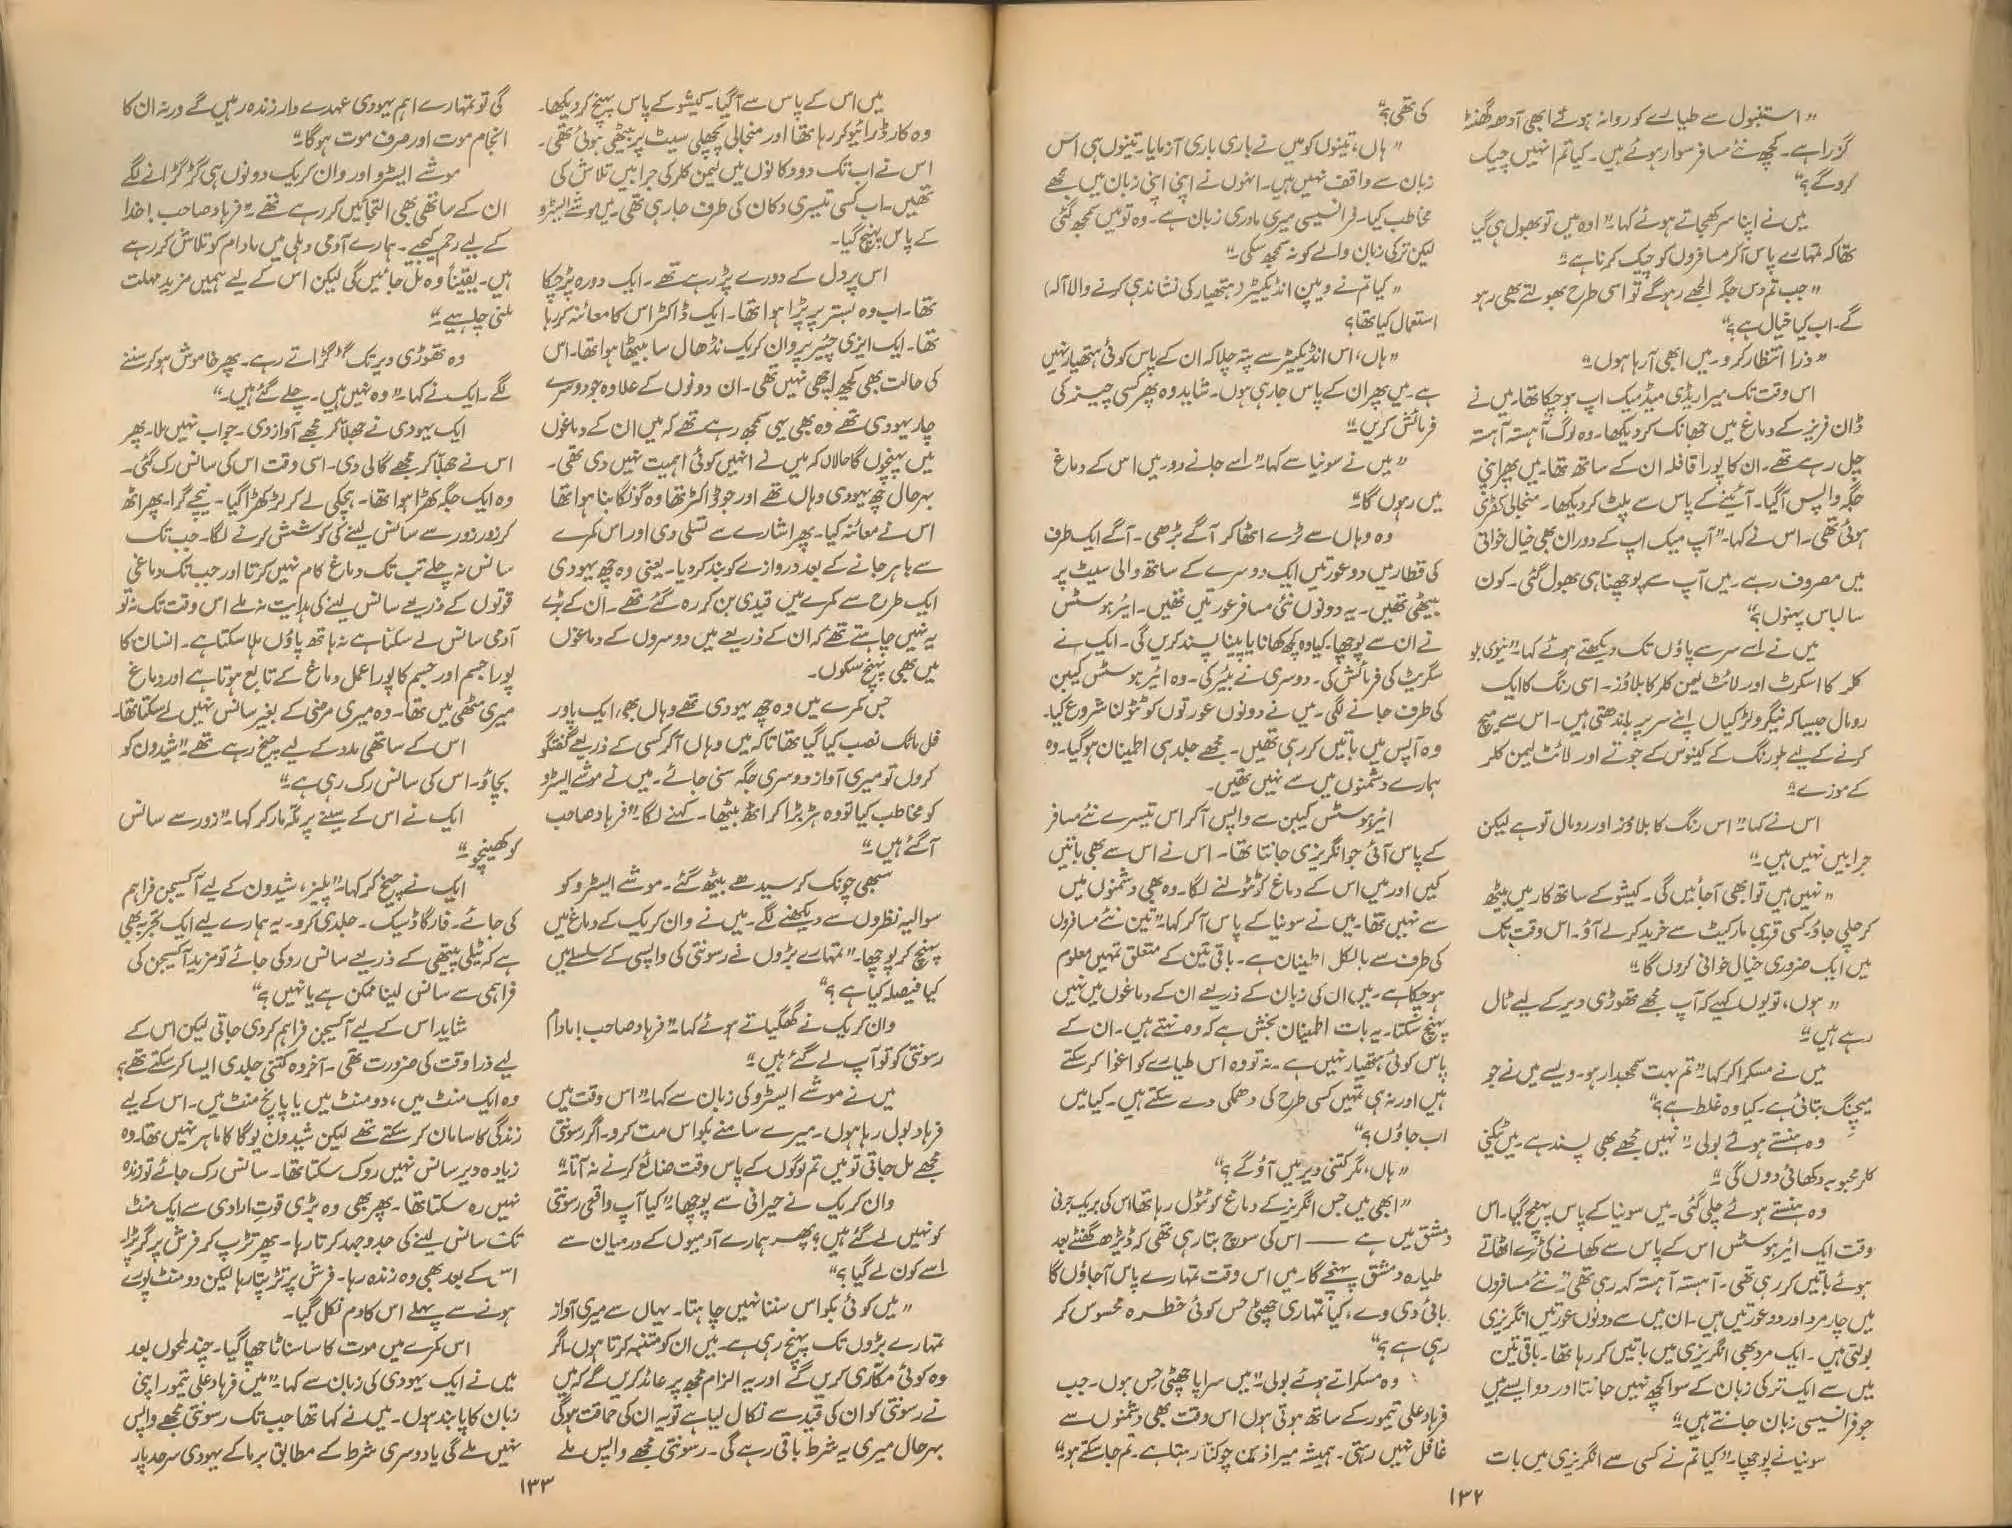 ”استنبول سے طیارے کو روانہ ہوئے ابھی آدھ گھنٹہ
گزرا ہے۔ کچھ نئے مسافر سوار ہوئے ہیں۔ کیا تم انہیں چیک
کرو گے؟“
میں نے اپنا سر کھجاتے ہوئے کہا۔ ”اوہ میں تو بھول ہی گیا
تھا کہ تمہارے پاس آکر مسافروں کو چیک کرنا ہے۔“
”جب تم دس جگہ الجھے رہو گے تو اسی طرح بھولتے بھی رہو
گے۔ اب کیا خیال ہے؟“
”ذرا انتظار کرو۔ میں ابھی آ رہا ہوں۔“
اس وقت تک میرا ریڈی میڈ میک اپ ہو چکا تھا۔ میں نے
ڈان فریز کے دماغ میں جھانک کر دیکھا۔ وہ لوگ آہستہ آہستہ
چل رہے تھے۔ ان کا پورا قافلہ ان کے ساتھ تھا۔ میں پھر اپنی
جگہ واپس آ گیا۔ آئینے کے پاس سے پلٹ کر دیکھا۔ منجالی کھڑی
ہوئی تھی۔ اس نے کہا۔ ”آپ میک اپ کے دوران بھی خیال خوانی
میں مصروف رہے۔ میں آپ سے پوچھنا ہی بھول گئی۔ کون
سا لباس پہنوں؟“
میں نے اسے سر سے پاؤں تک دیکھتے ہوئے کہا۔ ”نیوی بلو
کلر کا اسکرٹ اور لائٹ لیمن کلر کا بلاؤز۔ اسی رنگ کا ایک
رومال جیسا کہ نیگرو لڑکیاں اپنے سر پر باندھتی ہیں۔ اس سے میچ
کرنے کے لیے بلو رنگ کے کینوس کے جوتے اور لائٹ لیمن کلر
کے موزے۔“
اس نے کہا۔ ”اس رنگ کا بلاؤز اور رومال تو ہے لیکن
جرابیں نہیں ہیں۔“
”نہیں ہیں تو ابھی آ جائیں گی۔ کیشو کے ساتھ کار میں بیٹھ
کر چلی جاؤ۔ کسی قریبی مارکیٹ سے خرید کر لے آؤ۔ اس وقت تک
میں ایک ضروری خیال خوانی کروں گا۔“
”ہوں، تو یوں کہیے کہ آپ مجھے تھوڑی دیر کے لیے ٹال
رہے ہیں۔“
میں نے مسکرا کر کہا۔ ”تم بہت سمجھدار ہو۔ ویسے میں نے جو
میچنگ بتائی ہے۔ کیا وہ غلط ہے؟“
وہ ہنستے ہوئے بولی۔ ”نہیں مجھے بھی پسند ہے۔ میں ٹیکنی
کلر محبوبہ دکھائی دوں گی۔“
وہ ہنستے ہوئے چلی گئی۔ میں سونیا کے پاس پہنچ گیا۔ اس
وقت ایک ائیر ہوسٹس اس کے پاس سے کھانے کی ٹرے اٹھاتے
ہوئے باتیں کر رہی تھی۔ آہستہ آہستہ کہہ رہی تھی ”نئے مسافروں
میں چار مرد اور دو عورتیں ہیں۔ ان میں سے دونوں عورتیں انگریزی
بولتی ہیں۔ ایک مرد بھی انگریزی میں باتیں کر رہا تھا۔ باقی تین
میں سے ایک ترکی زبان کے سوا کچھ نہیں جانتا اور دو ایسے ہیں
جو فرانسیسی زبان جانتے ہیں۔“
سونیا نے پوچھا۔ ”کیا تم نے کسی سے انگریزی میں بات
کی تھی؟“
”ہاں، تینوں کو میں نے باری باری آزمایا۔ تینوں ہی اس
زبان سے واقف نہیں ہیں۔ انہوں نے اپنی اپنی زبان میں مجھے
مخاطب کیا۔ فرانسیسی میری مادری زبان ہے۔ وہ تو میں سمجھ گئی
لیکن ترکی زبان والے کو نہ سمجھ سکی۔“
”کیا تم نے ویپن انڈیکیٹر (ہتھیار کی نشاندہی کرنے والا آلہ)
استعمال کیا تھا؟
”ہاں، اس انڈیکیٹر سے پتہ چلا کہ ان کے پاس کوئی ہتھیار نہیں
ہے۔ میں پھر ان کے پاس جا رہی ہوں۔ شاید وہ پھر کسی چیز کی
فرمائش کریں۔“
”میں نے سونیا سے کہا۔ ”اسے جانے دو۔ میں اس کے دماغ
میں رہوں گا۔“
وہ وہاں سے ٹرے اٹھا کر آگے بڑھی۔ آگے ایک طرف
کی قطار میں دو عورتیں ایک دوسرے کے ساتھ والی سیٹ پر
بیٹھی تھیں۔ یہ دونوں نئی مسافر عورتیں تھیں۔ ائیر ہوسٹس
نے ان سے پوچھا۔ کیا وہ کچھ کھانا یا پینا پسند کریں گی۔ ایک نے
سگریٹ کی فرمائش کی۔ دوسری نے بیئر کی۔ وہ ائیر ہوسٹس کیبن
کی طرف جانے لگی۔ میں نے دونوں عورتوں کو ٹٹولنا شروع کیا۔
وہ آپس میں باتیں کر رہی تھیں۔ مجھے جلد ہی اطمینان ہو گیا۔ وہ
ہمارے دشمنوں میں سے نہیں تھیں۔
ائیر ہوسٹس کیبن سے واپس آکر اس تیسرے نئے مسافر
کے پاس آئی جو انگریزی جانتا تھا۔ اس نے اس سے بھی باتیں
کیں اور میں اس کے دماغ کو ٹٹولنے لگا۔ وہ بھی دشمنوں میں
سے نہیں تھا۔ میں نے سونیا کے پاس آکر کہا۔ ”تین نئے مسافروں
کی طرف سے بالکل اطمینان ہے۔ باقی تین کے متعلق تمہیں معلوم
ہو چکا ہے۔ میں ان کی زبان کے ذریعے ان کے دماغوں میں نہیں
پہنچ سکتا۔ یہ بات اطمینان بخش ہے کہ وہ نہتے ہیں۔ ان کے
پاس کوئی ہتھیار نہیں ہے۔ نہ تو وہ اس طیارے کو اغوا کر سکتے
ہیں اور نہ ہی تمہیں کسی طرح کی دھمکی دے سکتے ہیں۔ کیا میں
اب جاؤں؟“
”ہاں، مگر کتنی دیر میں آؤ گے؟“
”ابھی میں جس انگریز کے دماغ کو ٹٹول رہا تھا اس کی بریک جرنی
دمشق میں ہے —— اس کی سوچ بتا رہی تھی کہ ڈیڑھ گھنٹے بعد
طیارہ دمشق پہنچے گا۔ میں اس وقت تمہارے پاس آ جاؤں گا
بائی دی وے، کیا تمہاری چھٹی حس کوئی خطرہ محسوس کر
رہی ہے؟“
وہ مسکراتے ہوئے بولی۔ ”میں سراپا چھٹی حس ہوں۔ جب
فرہاد علی تیمور کے ساتھ ہوتی ہوں اس وقت بھی دشمنوں سے
غافل نہیں رہتی۔ ہمیشہ میرا ذہن چوکنا رہتا ہے۔ تم جا سکتے ہو“
۱۳۲
میں اس کے پاس سے آ گیا۔ کیشو کے پاس پہنچ کر دیکھا۔
وہ کار ڈرائیو کر رہا تھا اور منجالی پچھلی سیٹ پر بیٹھی ہوئی تھی۔
اس نے اب تک دو دکانوں میں لیمن کلر کی جرابیں تلاش کی
تھیں۔ اب کسی تیسری دکان کی طرف جا رہی تھی۔ میں موشے ایسٹرو
کے پاس پہنچ گیا۔
اس پر دل کے دورے پڑ رہے تھے۔ ایک دورہ پڑ چکا
تھا۔ اب وہ بستر پر پڑا ہوا تھا۔ ایک ڈاکٹر اس کا معائنہ کر رہا
تھا۔ ایک ایزی چیئر پر وان کریک نڈھال سا بیٹھا ہوا تھا۔ اس
کی حالت بھی کچھ اچھی نہیں تھی۔ ان دونوں کے علاوہ جو دوسرے
چار یہودی تھے وہ بھی یہی سمجھ رہے تھے کہ میں ان کے دماغوں
میں پہنچوں گا حالاں کہ میں نے انہیں کوئی اہمیت نہیں دی تھی۔
بہرحال چھ یہودی وہاں تھے اور جو ڈاکٹر تھا وہ گونگا بنا ہوا تھا
اس نے معائنہ کیا۔ پھر اشارے سے تسلی دی اور اس کمرے
سے باہر جانے کے بعد دروازے کو بند کر دیا۔ یعنی وہ چھ یہودی
ایک طرح سے کمرے میں قیدی بن کر رہ گئے تھے۔ ان کے بڑے
یہ نہیں چاہتے تھے کہ ان کے ذریعے میں دوسروں کے دماغوں
میں بھی پہنچ سکوں۔
جس کمرے میں وہ چھ یہودی تھے وہاں بھی، ایک پاور
فل مائک نصب کیا گیا تھا تاکہ میں وہاں آکر کسی کے ذریعے گفتگو
کروں تو میری آواز دوسری جگہ سنی جائے۔ میں نے موشے ایسٹرو
کو مخاطب کیا تو وہ ہڑبڑا کر اٹھ بیٹھا۔ کہنے لگا۔ ”فرہاد صاحب
آ گئے ہیں۔“
سبھی چونک کر سیدھے بیٹھ گئے۔ موشے ایسٹرو کو
سوالیہ نظروں سے دیکھنے لگے۔ میں نے وان کریک کے دماغ میں
پہنچ کر پوچھا۔ ”تمہارے بڑوں نے رسونتی کی واپسی کے سلسلے میں
کیا فیصلہ کیا ہے؟“
وان کریک نے گھگیاتے ہوئے کہا۔ ”فرہاد صاحب! مادام
رسونتی کو تو آپ لے گئے ہیں۔“
میں نے موشے ایسٹرو کی زبان سے کہا۔ ”اس وقت میں
فرہاد بول رہا ہوں۔ میرے سامنے بکواس مت کرو۔ اگر رسونتی
مجھے مل جاتی تو میں تم لوگوں کے پاس وقت ضائع کرنے نہ آتا۔“
وان کریک نے حیرانی سے پوچھا۔ ”کیا آپ واقعی رسونتی
کو نہیں لے گئے ہیں؟ پھر ہمارے آدمیوں کے درمیان سے
اسے کون لے گیا؟“
”میں کوئی بکواس سننا نہیں چاہتا۔ یہاں سے میری آواز
تمہارے بڑوں تک پہنچ رہی ہے۔ میں ان کو متنبہ کرتا ہوں۔ اگر
وہ کوئی مکاری کریں گے اور یہ الزام مجھ پر عائد کریں گے کہ میں
نے رسونتی کو ان کی قید سے نکال لیا ہے تو یہ ان کی حماقت ہو گی
بہرحال میری یہ شرط باقی رہے گی۔ رسونتی مجھے واپس ملے
گی تو تمہارے اہم یہودی عہدے دار زندہ رہیں گے ورنہ ان کا
انجام موت اور صرف موت ہو گا۔“
موشے ایسٹرو اور وان کریک دونوں ہی گڑگڑانے لگے
ان کے ساتھی بھی التجائیں کر رہے تھے۔ ”فرہاد صاحب! خدا
کے لیے رحم کیجیے۔ ہمارے آدمی دہلی میں مادام کو تلاش کر رہے
ہیں۔ یقیناً وہ مل جائیں گی لیکن اس کے لیے ہمیں مزید مہلت
ملنی چاہیے۔“
وہ تھوڑی دیر تک گڑگڑاتے رہے۔ پھر خاموش ہو کر سننے
لگے۔ ایک نے کہا۔ ”وہ نہیں ہیں۔ چلے گئے ہیں۔“
ایک یہودی نے جھلّا کر مجھے آواز دی۔ جواب نہیں ملا۔ پھر
اس نے جھلّا کر مجھے گالی دی۔ اسی وقت اس کی سانس رک گئی۔
وہ ایک جگہ کھڑا ہوا تھا۔ ہچکی لے کر لڑکھڑا گیا۔ نیچے گرا۔ پھر اٹھ
کر زور زور سے سانس لینے کی کوشش کرنے لگا۔ جب تک
سانس نہ چلے تب تک دماغ کام نہیں کرتا اور جب تک دماغی
قوتوں کے ذریعے سانس لینے کی ہدایت نہ ملے اس وقت تک نہ تو
آدمی سانس لے سکتا ہے نہ ہاتھ پاؤں ہلا سکتا ہے۔ انسان کا
پورا جسم اور جسم کا پورا عمل دماغ کے تابع ہوتا ہے اور دماغ
میری مٹھی میں تھا۔ وہ میری مرضی کے بغیر سانس نہیں لے سکتا تھا۔
اس کے ساتھی مدد کے لیے چیخ رہے تھے۔ ”شیدون کو
بچاؤ۔ اس کی سانس رک رہی ہے۔“
ایک نے اس کے سینے پر مکّہ مار کر کہا۔ ”زور سے سانس
کو کھینچو۔“
ایک نے چیخ کر کہا۔ ”پلیز، شیدون کے لیے آکسیجن فراہم
کی جائے۔ فار گاڈ سیک۔ جلدی کرو۔ یہ ہمارے لیے ایک تجربہ بھی
ہے کہ ٹیلی پیتھی کے ذریعے سانس روکی جائے تو مزید آکسیجن کی
فراہمی سے سانس لینا ممکن ہے یا نہیں؟“
شاید اس کے لیے آکسیجن فراہم کر دی جاتی لیکن اس کے
لیے ذرا وقت کی ضرورت تھی۔ آخر وہ کتنی جلدی ایسا کر سکتے تھے؟
وہ ایک منٹ میں، دو منٹ میں یا پانچ منٹ میں۔ اس کے لیے
زندگی کا سامان کر سکتے تھے لیکن شیدون یوگا کا ماہر نہیں تھا۔ وہ
زیادہ دیر سانس نہیں روک سکتا تھا۔ سانس رک جائے تو زندہ
نہیں رہ سکتا تھا۔ پھر بھی وہ بڑی قوتِ ارادی سے ایک منٹ
تک سانس لینے کی جدوجہد کرتا رہا۔ پھر تڑپ کر فرش پر گر پڑا
اس کے بعد بھی وہ زندہ رہا۔ فرش پر تڑپتا رہا لیکن دو منٹ پورے
ہونے سے پہلے اس کا دم نکل گیا۔
اس کمرے میں موت کا سا سناٹا چھا گیا۔ چند لمحوں بعد
میں نے ایک یہودی کی زبان سے کہا۔ ”میں فرہاد علی تیمور اپنی
زبان کا پابند ہوں۔ میں نے کہا تھا جب تک رسونتی مجھے واپس
نہیں ملے گی یا دوسری شرط کے مطابق برما کے یہودی سرحد پار
۱۳۳